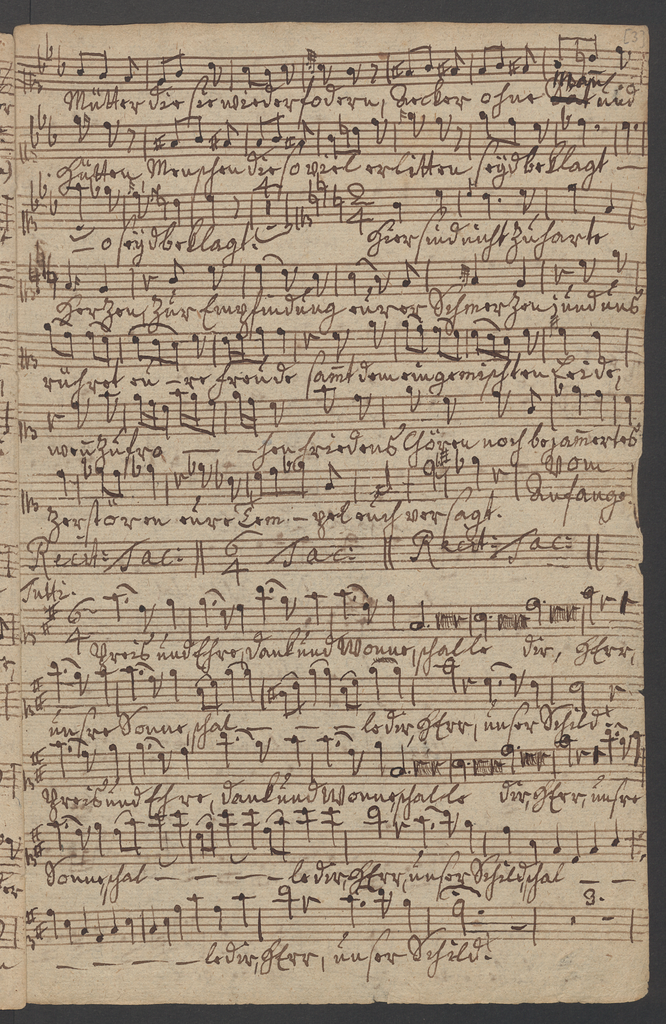 [3]
Mütter die sie wieder fodern, Aecker ohne Mann und
Hütten Menschen die so viel erlitten seyd beklagt —
— o seyd beklagt. Hier sind nicht zu harte
Herzen, zur Empfindung eurer Schmerzen, und uns
rühret eu – re Freude samt dem eingemischten Leide,
wenn zu fro — — hen Friedens Chören noch bejammertes
Vom
Anfange.
Zerstören eure Tem – pel euch versagt.
Recit: Tac: || 6/4 Tac: || Recit: Tac: ||
Tutti.
Preis und Ehre, Dank und Wonne, schalle dir, HErr,
unsre Sonne, schal — — — le dir, HErr, unser Schild.
Preis und Ehre, Dank und Wonne schalle dir, HErr, unsre
Sonne schal — — — — le dir, HErr, unser Schild, schal — —
— — — — le dir, HErr, unser Schild.